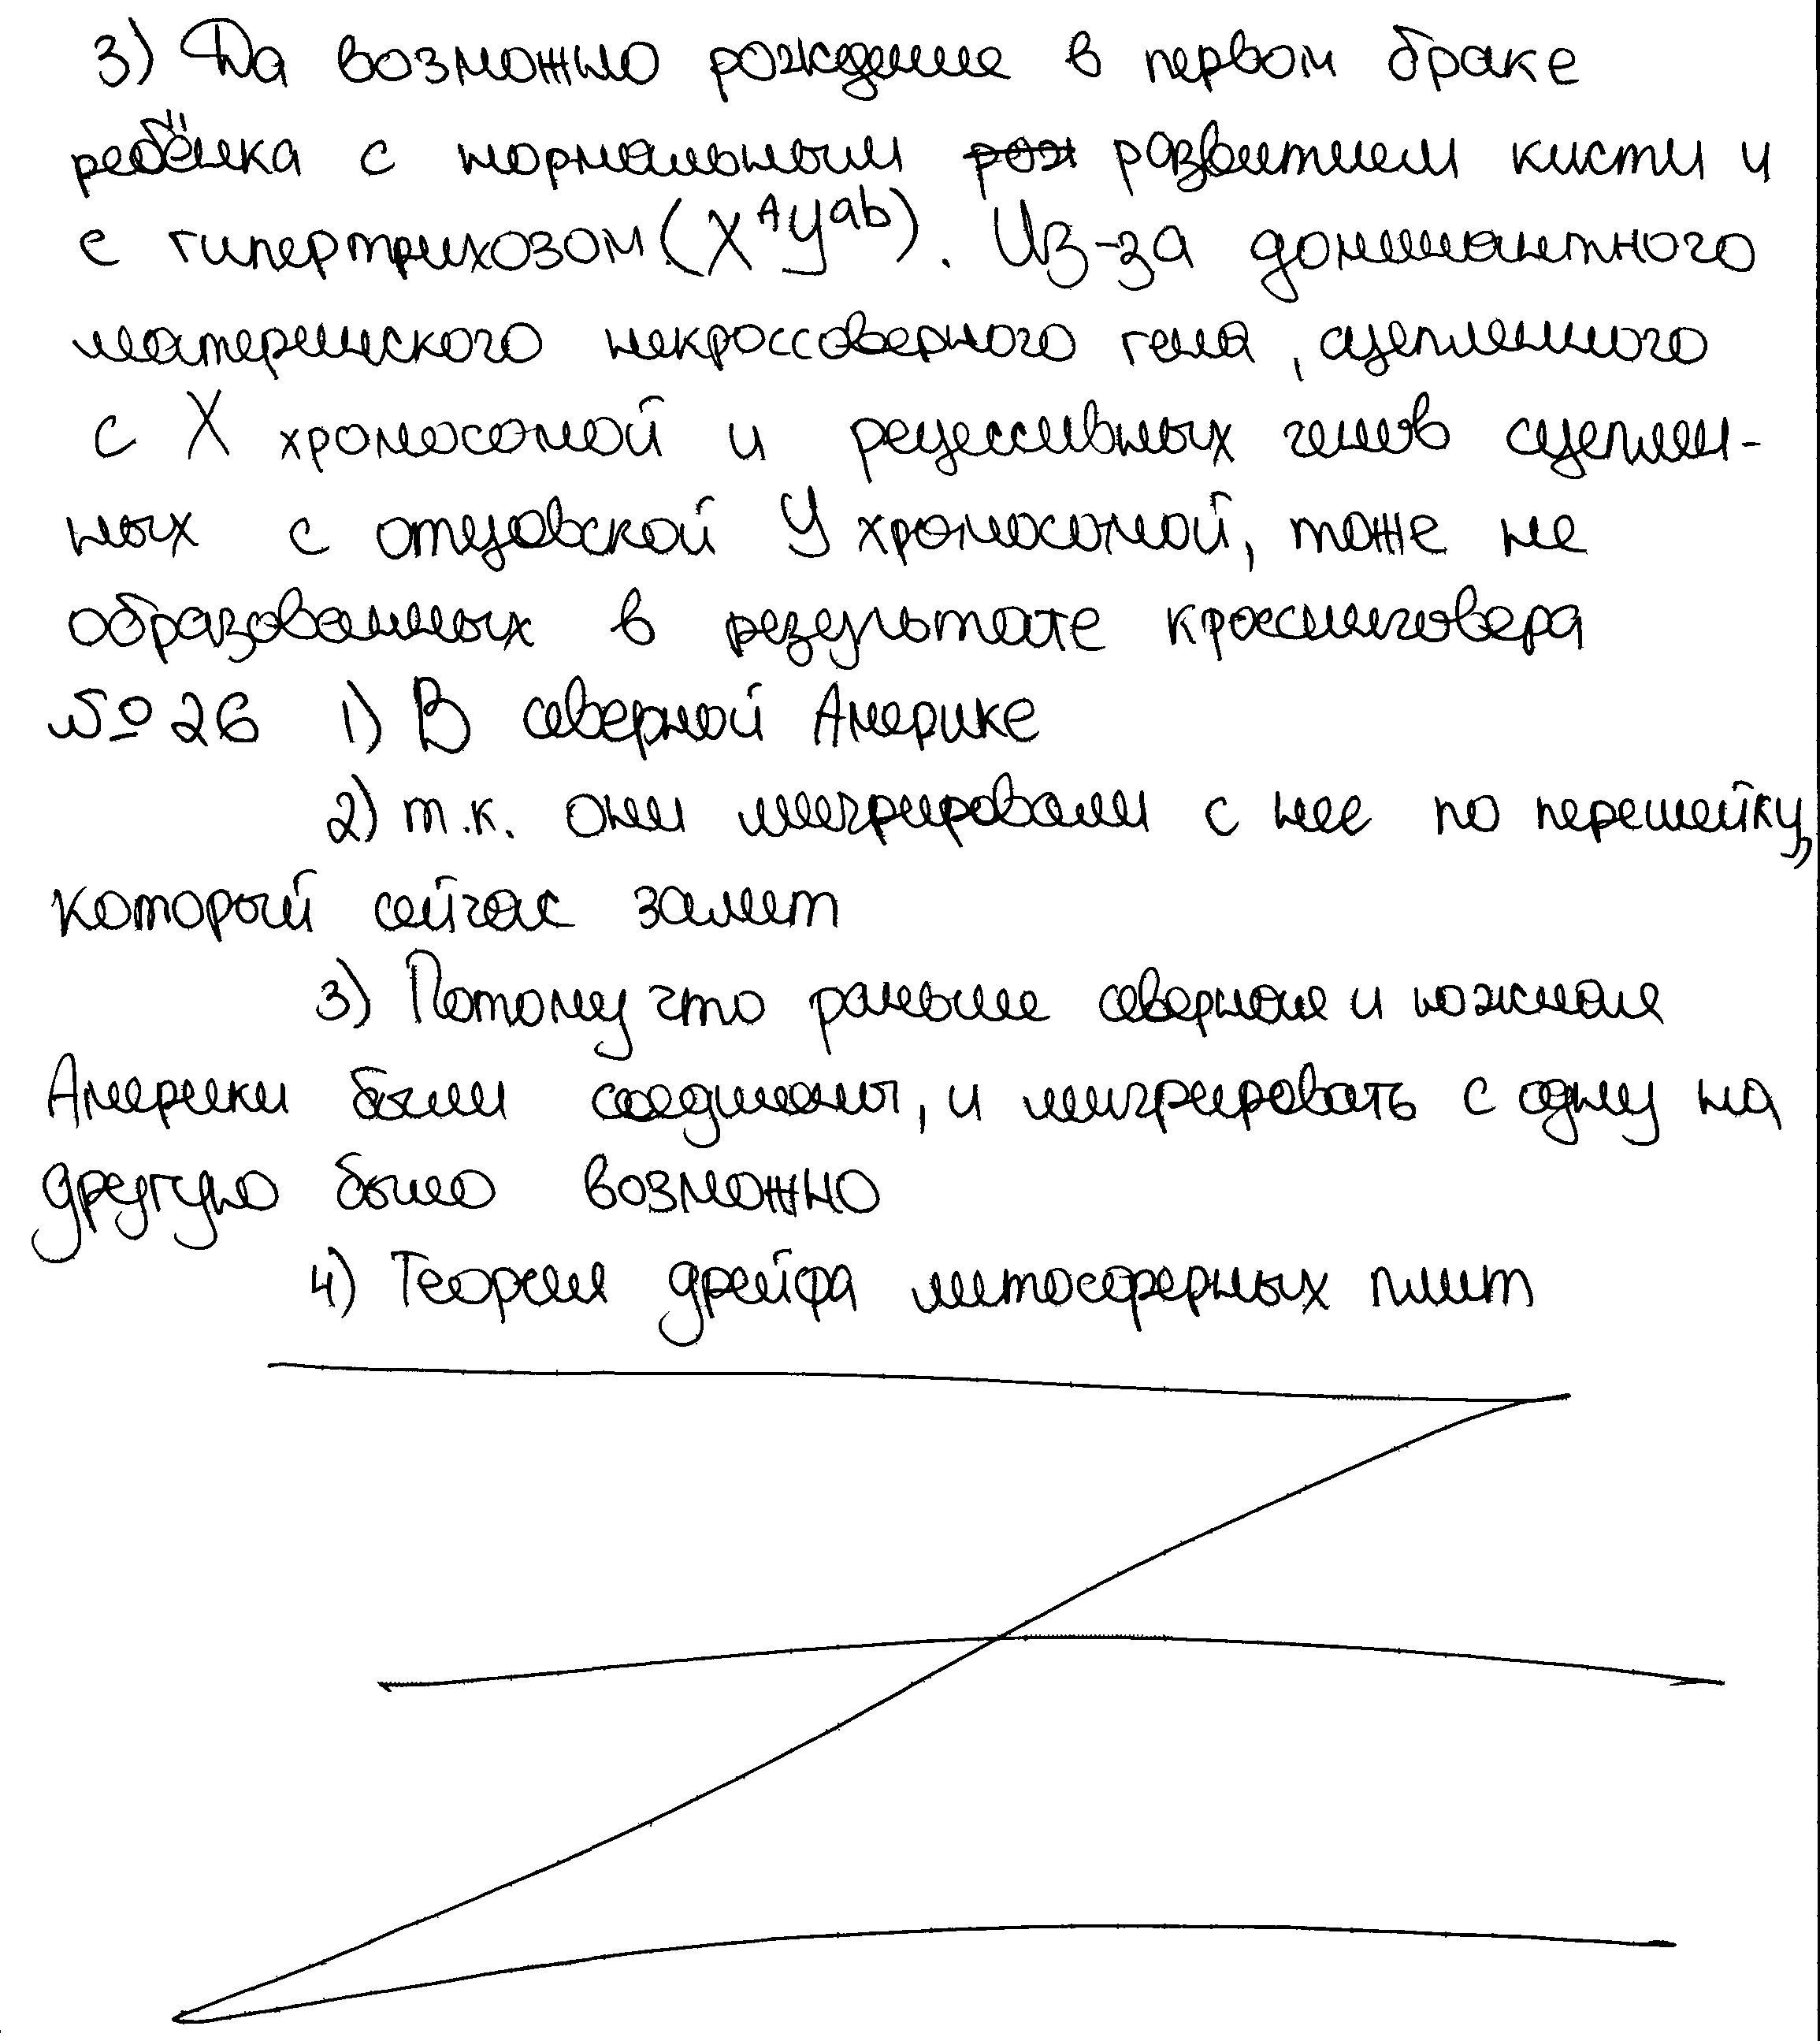 3) Да возможно рождение в первом браке
ребёнка с нормальным роз развитием кисти и
с гипертрихозом (X^AY^ab). Из-за доминантного
материнского некроссоверного гена, сцепленного
с X хромосомой и рецессивных генов сцеплен-
ных с отцовской Y хромосомой, тоже не
образованных в результате кроссинговера
№26 1) В северной Америке
2) т.к. они мигрировали с нее по перешейку,
который сейчас залит
3) Потому что раньше северная и южная
Америки были соединены, и мигрировать с одну на
другую было возможно
4) Теория дрейфа литосферных плит